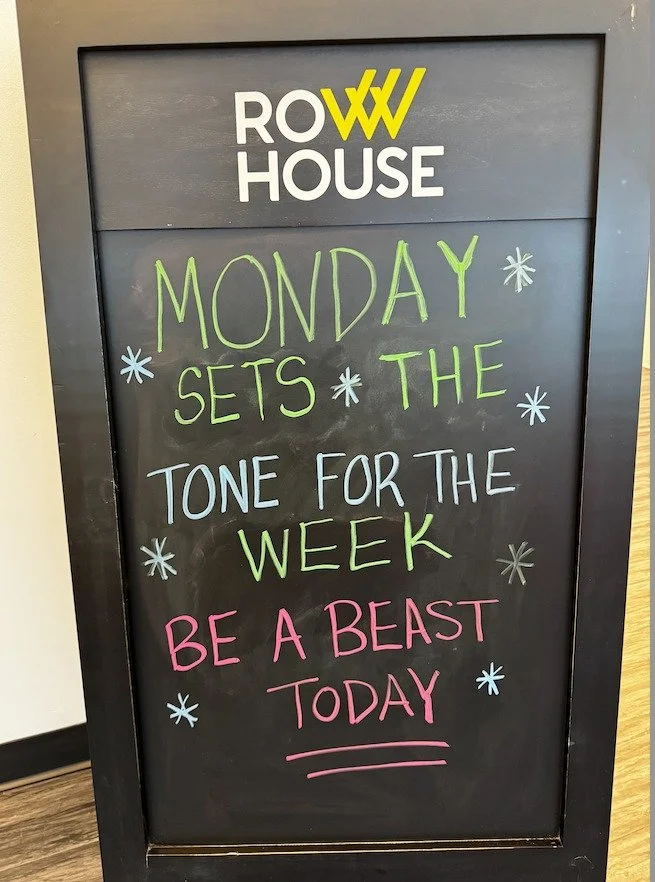 ROW
HOUSE
MONDAY
SETS THE
TONE FOR THE
WEEK
BE A BEAST
TODAY